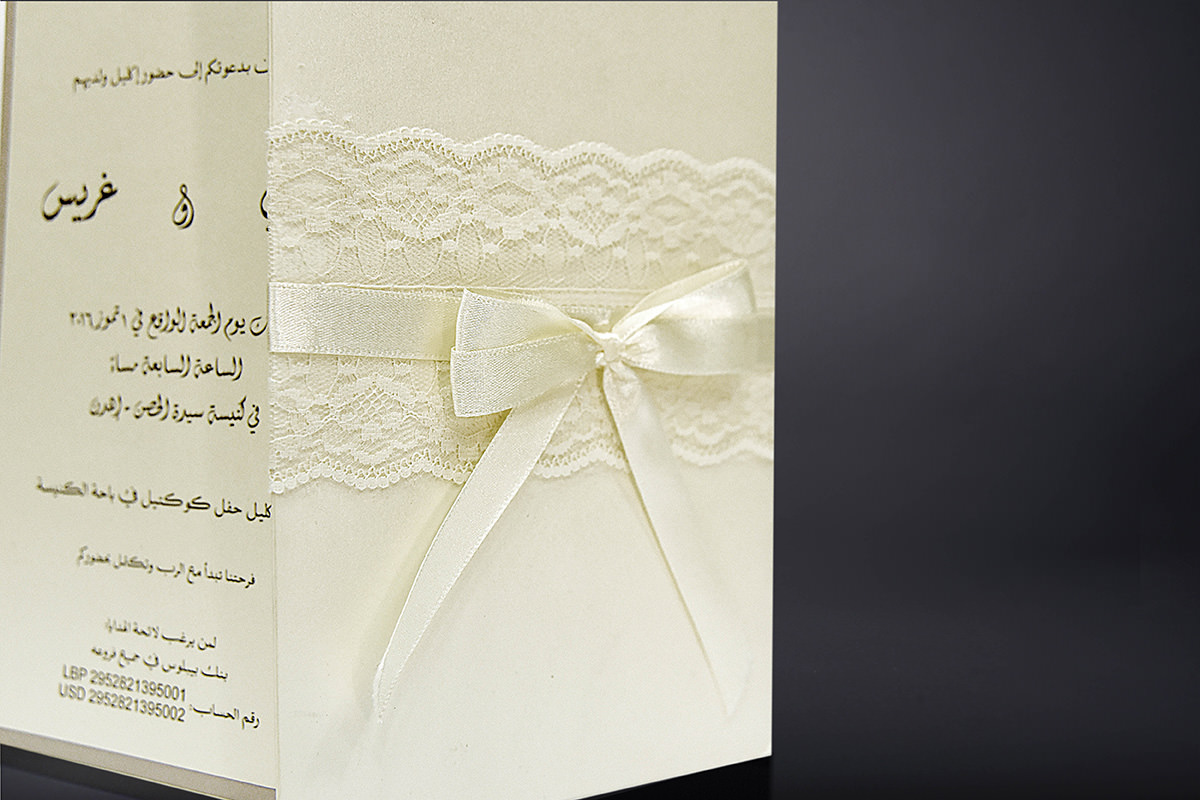 بدعوتكم إلى حضور إكليل ولديهم
و غريس
يوم الجمعة الواقع في ١ تموز ٢٠١٦
الساعة السابعة مساءً
في كنيسة سيدة الحصن - إهدن
حفل كوكتيل في باحة الكنيسة
فرحتنا تبدأ مع الرب وتكتمل بحضوركم
لمن يرغب لائحة الهدايا:
بنك بيبلوس في جميع فروعه
رقم الحساب: LBP 2952821395001
USD 2952821395002